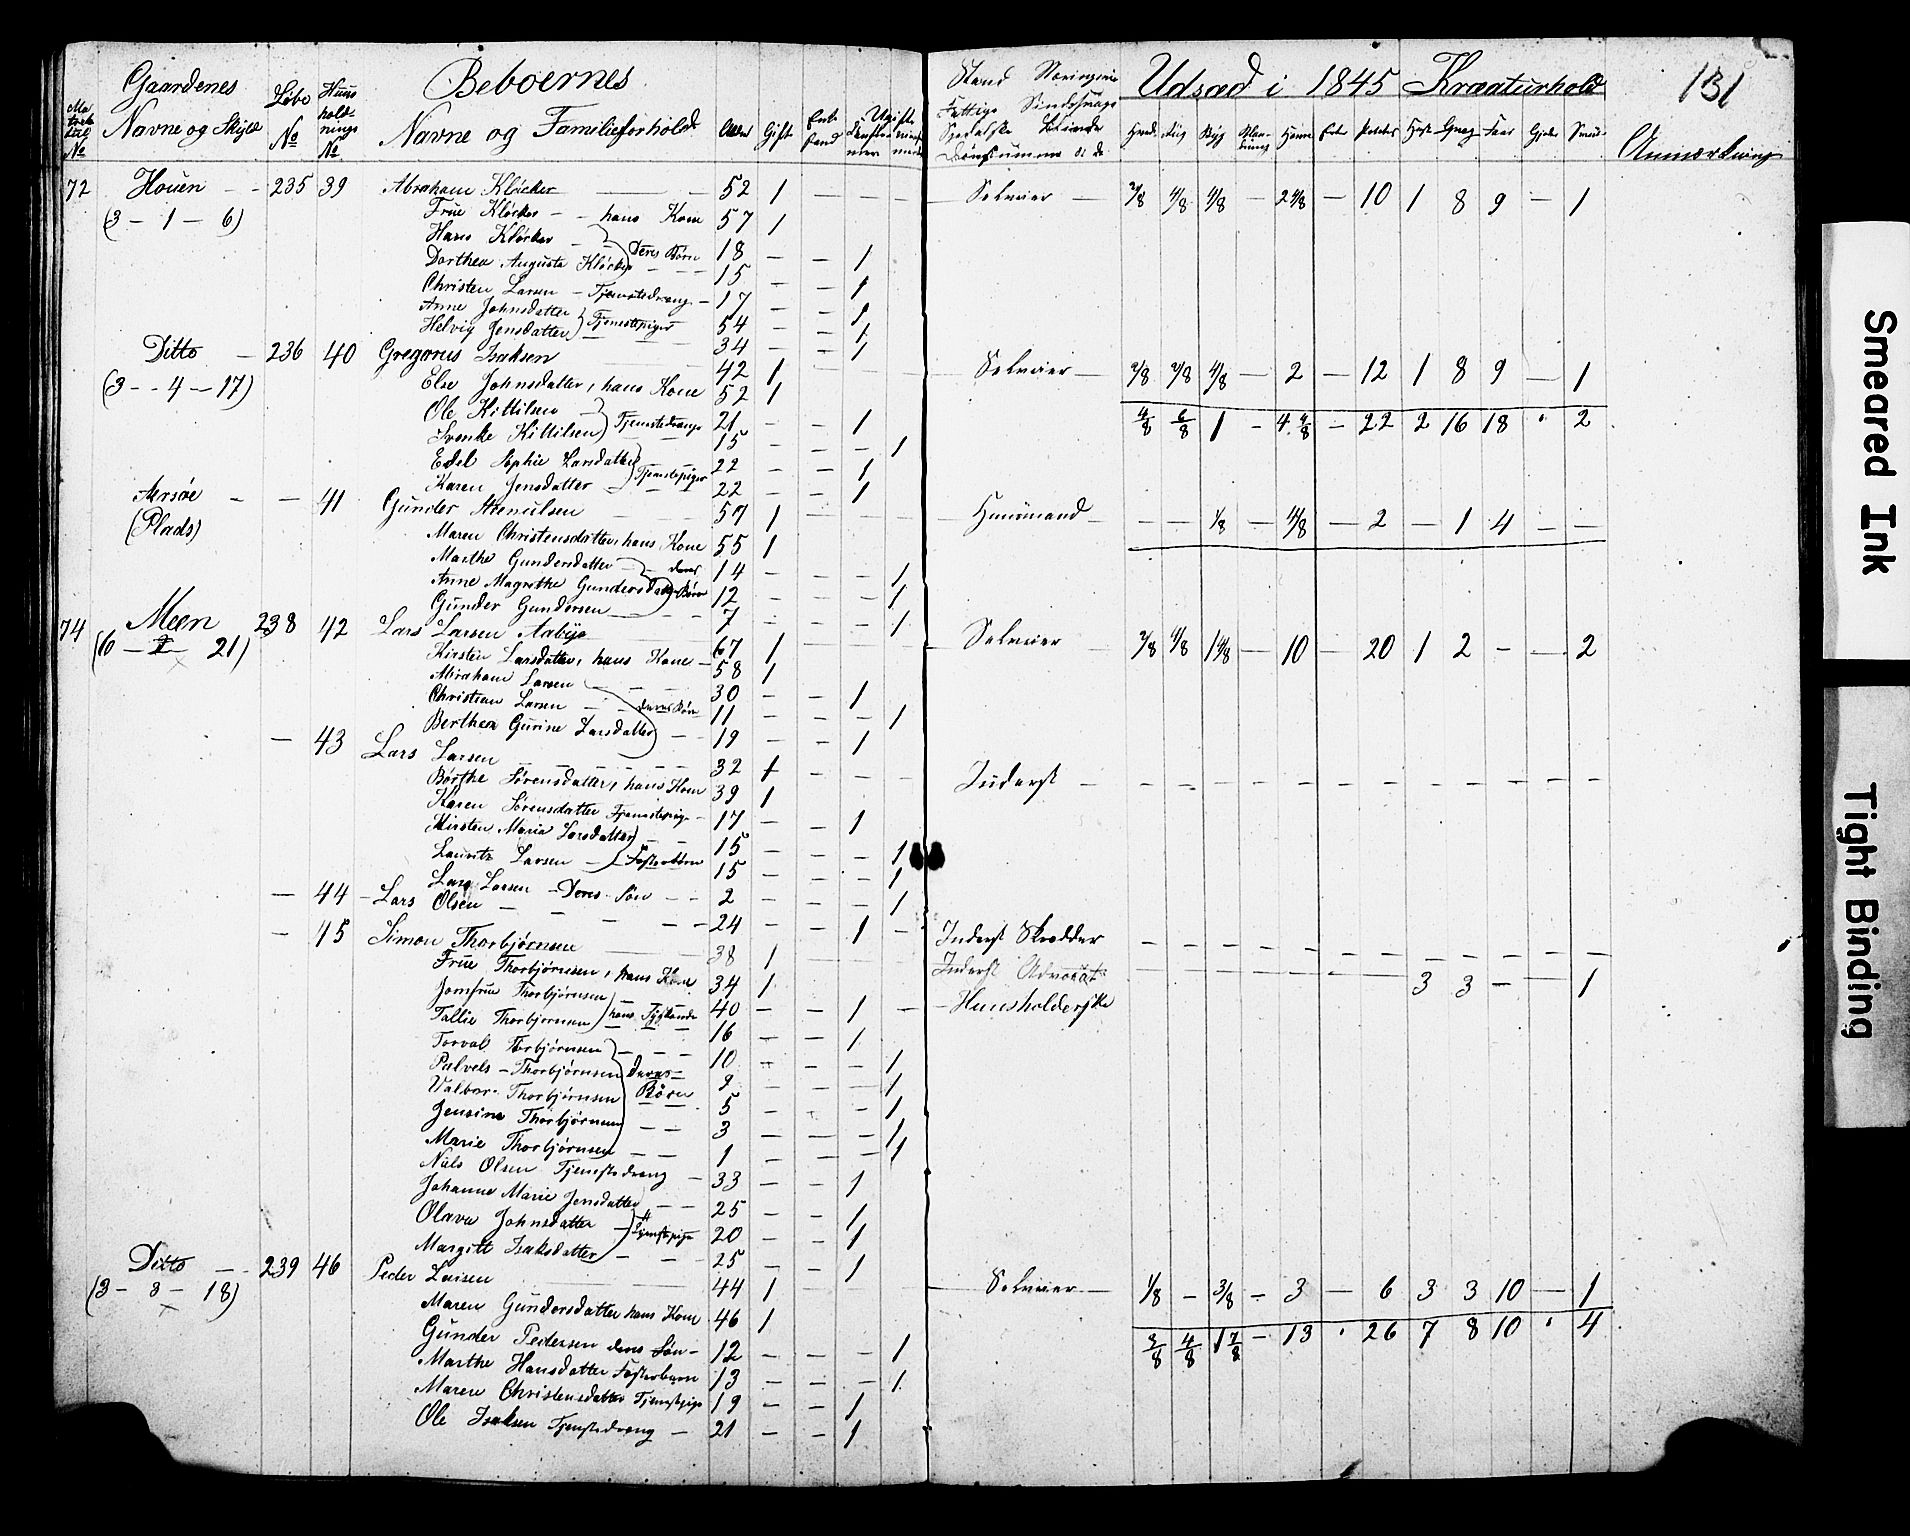 Gaardenes
Navne og Skyld
Løbe No
Huus holdnings No
Beboernes
Navne og Familieforhold
Alder Gift
Udsæd i 1845 Kreaturhold
131
Anmærkning
72 Houen — - 235 39 Abraham Kløcker — — 52 1 — — — Selveier — 2/8 4/8 4/8 — 2 4/8 — 10 1 8 9 — 1
(3 — 1 — 6) Frue Kløcker - - hans Kone 57 1
Hans Kløcker - - Deres Børn 18 — — 1
Dorthea Augusta Kløcker 15 — — 1
Christen Larsen — Tjenestedreng — 17 — — 1
Anne Johnsdatter Tjenestepiger 54 — — 1
Helvig Jensdatter 34 — — 1
Ditto — 236 40 Gregorius Isaksen 42 1 Selveier — 2/8 2/8 4/8 — 2 — 12 1 8 9 — 1
(3 - - 4 — 17) Else Johnsdatter, hans Kone 52 1
Ole Kittilsen — Tjenestedrenge 21 — — 1 4/8 6/8 1 - 4 4/8 - 22 2 16 18 " 2
Svenke Kittilsen 15 — — — 1
Edel Sophie Larsdatter Tjenestepiger 22 — — 1
Karen Jensdatter 22 — — 1
Aersøe - — 41 Gunder Steenulsen 57 1 Huusmand — — — 1/8 — 4/8 — 2 — 1 4 — —
(Plads) Maren Christensdatter, hans Kone 55 1
Marthe Gundersdatter — deres 14 — — — 1
Anne Magrethe Gundersdatter Børn 12 — — — 1
Gunder Gundersen — 7 — — — 1
74 Meen 238 42 Lars Larsen Aabye 67 1 Selveier 2/8 4/8 1 4/8 — 10 — 20 1 2 - — 2
(6 — 2 — 21) Kirsten Larsdatter, hans Kone — 58 1
Abraham Larsen 30 — — 1
Christian Larsen — deres Børn 11 — — — 1
Berthea Gurine Larsdatter — 19 — — 1
— 43 Lars Larsen 32 1 — — — Inderst — — — — — — — — — — — —
Børthe Sørensdatter, hans Kone 39 1
Karen Sørensdatter Tjenestepige — 17 — — 1
Kirsten Maria Larsdatter 15 — — — 1
Lauritz Larsen — Fosterbørn 15 — — — 1
Lars Larsen — Deres Søn — 2 — — — 1
— 44 — Lars Olsen — — — — 24 — — 1 — Inderst Skrædder — — — — — — — — — — — —
— 45 Simon Thorbjørnsen 38 1 Inderst Advocat — — — — — — — 3 3 — — 1
Frue Thorbjørnsen, hans Kone 34 1
Jomfrue Thorbjørnsen hans Sydskende 40 — — 1 — Huusholderske
Tallie Thorbjørnsen 16 — — 1
Torval Thorbjørnsen 10 — — — 1
Palvels — Thorbjørnsen Deres 9 — — — 1
Valbor Thorbjørnsen Børn 5 — — — 1
Jensine Thorbjørnsen 3 — — — 1
Marie Thorbjørnsen 1 — — — 1
Niels Olsen Tjenestedreng — 33 — — 1
Johanne Marie Jensdatter 25 — — 1
Olava Johnsdatter Tjenestepige 20 — — 1
Margitt Isaksdatter — 25 — — 1
Ditto — 239 46 Peder Larsen 44 1 Selveier — 1/8 - 3/8 - 3 — 6 3 3 10 — 1
(3 — 3 — 18) Maren Gundersdatter hans Kone 46 1 3/8 4/8 1 7/8 - 13 " 26 7 8 10 " 4
Gunder Pedersen deres Søn — 12 — — — 1
Marthe Hansdatter Fosterbarn 13 — — — 1
Maren Christensdatter Tjenestepige 19 — — 1
Ole Isaksen Tjenestedreng — 21 — — 1
Smeared Ink
Tight Binding